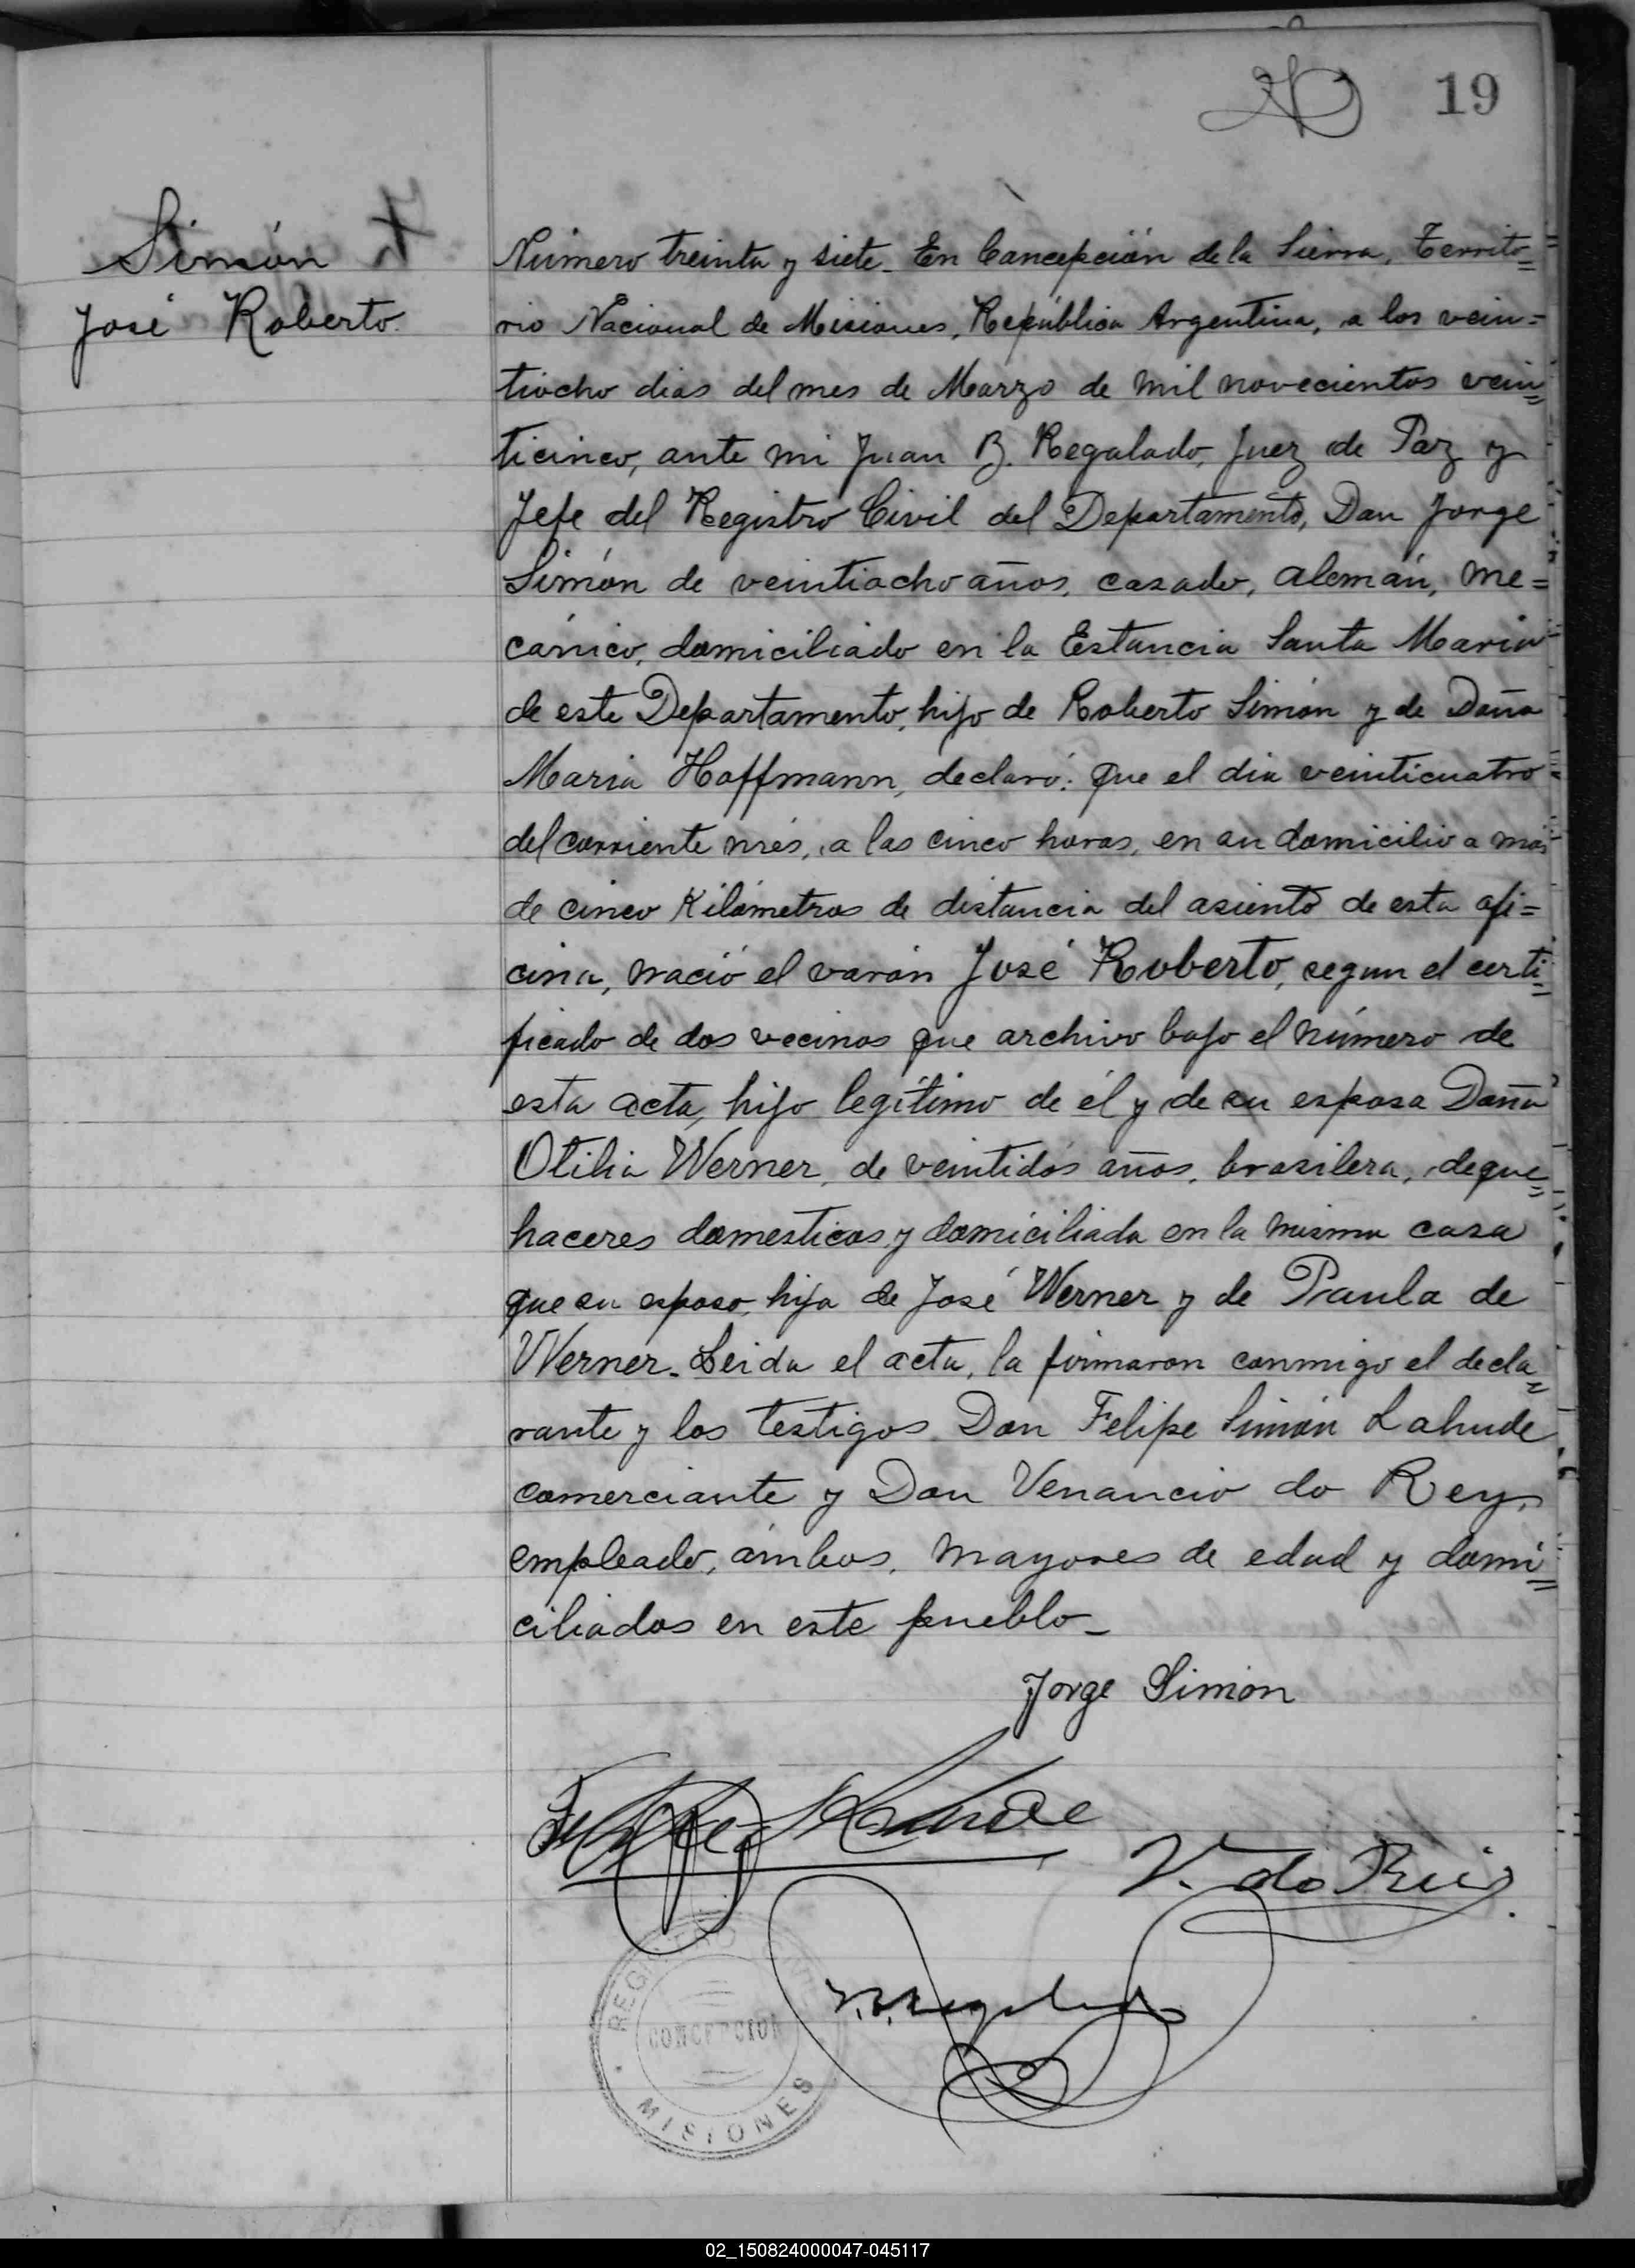 19
Simón
José Roberto.
Número treinta y siete. En Concepción de la Sierra, Territo=
rio Nacional de Misiones, República Argentina, a los vein=
tiocho dias del mes de Marzo de mil novecientos vein=
ticinco, ante mi Juan B. Regalado, Juez de Paz y
Jefe del Registro Civil del Departamento, Don Jorge
Simón de veintiocho años, casado, alemán, me=
cánico, domiciliado en la Estancia Santa Maria
de este Departamento, hijo de Roberto Simón y de Doña
Maria Hoffmann, declaró: Que el dia veinticuatro
del corriente més, a las cinco horas, en su domicilio a más
de cinco Kilómetros de distancia del asiento de esta ofi=
cina, nació el varón José Roberto, segun el certi=
ficado de dos vecinos que archivo bajo el número de
esta acta, hijo legítimo de él y de su esposa Doña
Otilia Werner, de veintidós años, brasilera, de que=
haceres domesticos y domiciliada en la misma casa
que su esposo, hija de José Werner y de Paula de
Werner. Leida el acta, la firmaron conmigo el decla=
rante y los testigos Don Felipe Simón Lahude
comerciante y Don Venancio do Rey,
empleado, ámbos, mayores de edad y domi=
ciliados en este pueblo_
Jorge Simon
V. do Rei
REGISTRO
CONCEPCION
MISIONES
02_150824000047-045117